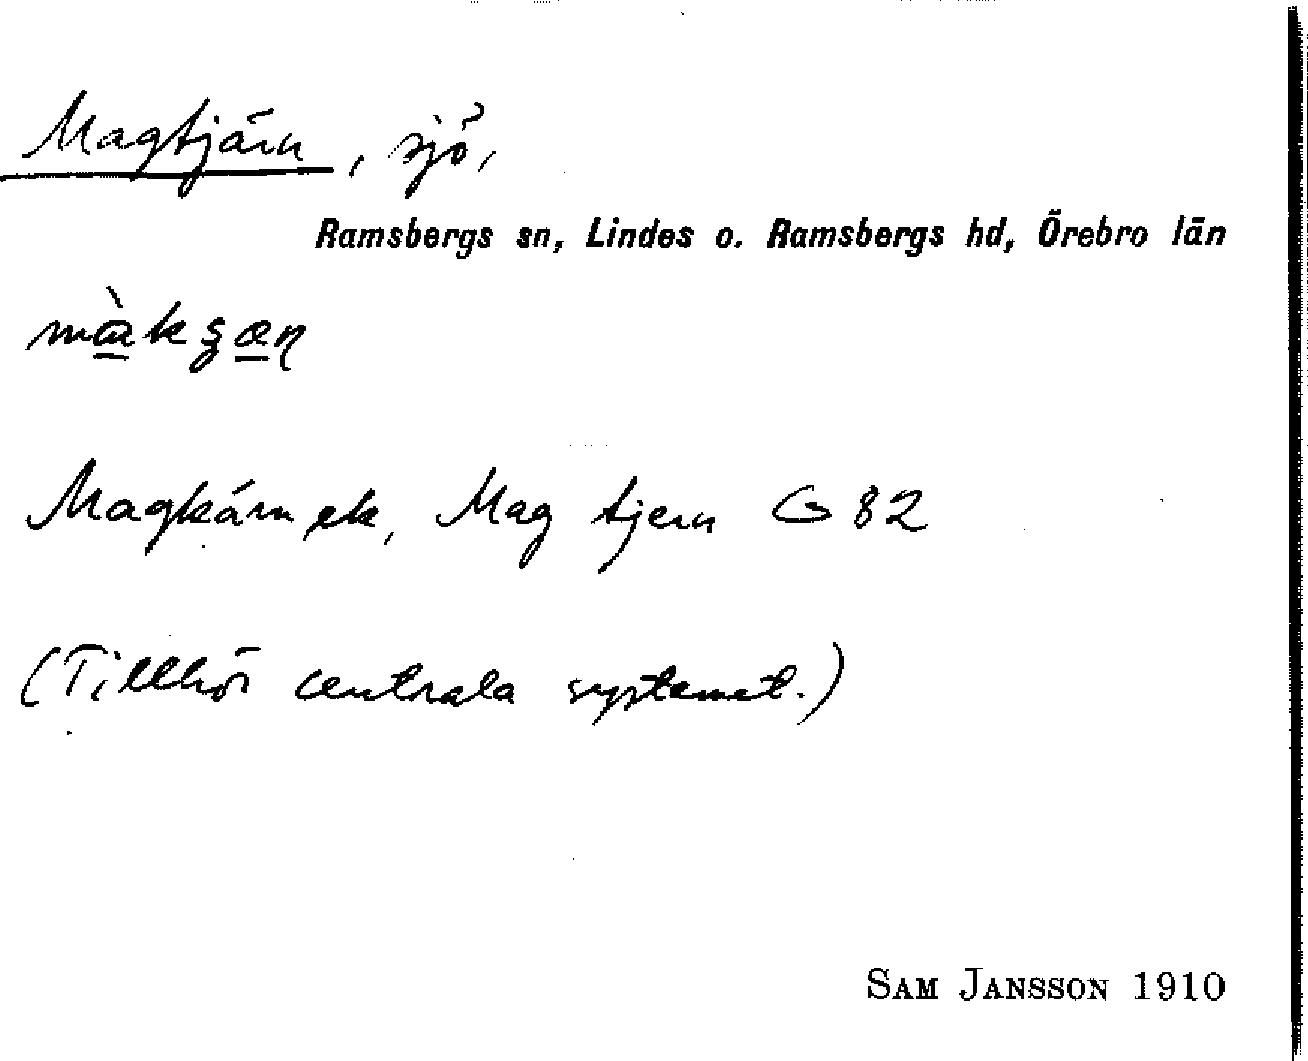 Magtjärn, sjö,
Ramsbergs sn, Lindes o. Ramsbergs hd, Örebro län
Magkärn ek, Mag tjern G 82
(Tillhör centrala systemet.)
SAM JANSSON 1910